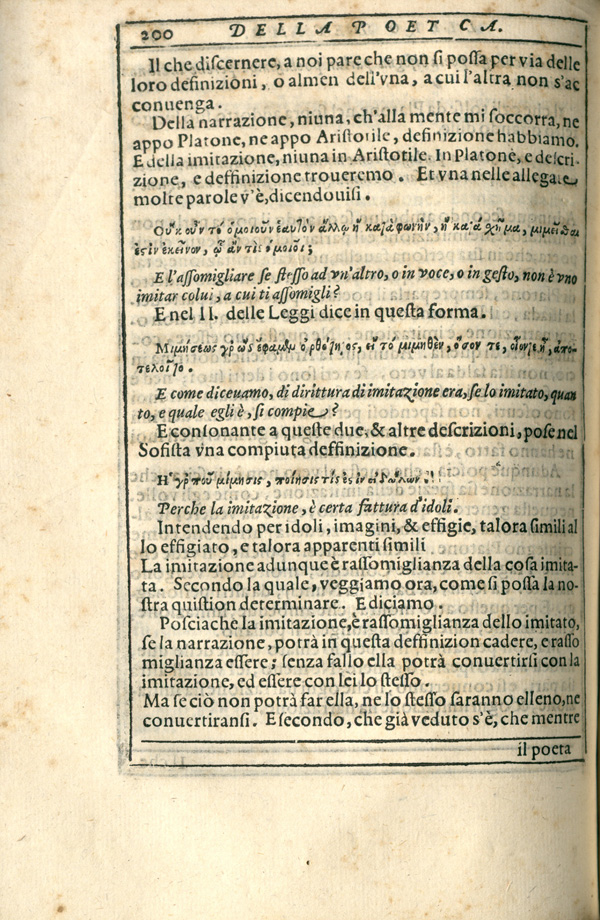 200 DELLA POET CA.
Il che discernere, a noi pare che non si possa per via delle
loro definizioni, o almen dell'vna, a cui l'altra non s'ac
conuenga.
Della narrazione, niuna, ch'alla mente mi soccorra, ne
appo Platone, ne appo Aristotile, definizione habbiamo.
E della imitazione, niuna in Aristotile. In Platone, e descri-
zione, e deffinizione troueremo. Et vna nelle allegate
molte parole v'è, dicendouisi.
Οὐκοῦν τὸ ὁμοιοῦν ἑαυτὸν ἄλλῳ ἢ κατὰ φωνὴν, ἢ κατὰ χῆμα, μιμεῖσθαι
ἐςὶν ἐκεῖνον, ᾧ ἄν τις ὁμοιοῖ;
E l'assomigliare se stesso ad vn'altro, o in voce, o in gesto, non è vno
imitar colui, a cui ti assomigli?
E nel II. delle Leggi dice in questa forma.
Μιμήσεως γὰρ ὡς ἔφαμεν ὀρθότης, εἰ τὸ μιμηθὲν, ὅσον τε, οἷον ἦν, ἀπο-
τελοῖτο.
E come diceuamo, di dirittura di imitazione era, se lo imitato, quan
to, e quale egli è, si compie?
E consonante a queste due, & altre descrizioni, pose nel
Sofista vna compiuta deffinizione.
Ἡ γάρ που μίμησις, ποίησις τίς ἐςιν εἰδώλων.
Perche la imitazione, è certa fattura d'idoli.
Intendendo per idoli, imagini, & effigie, talora simili al
lo effigiato, e talora apparenti simili
La imitazione adunque è rassomiglianza della cosa imita-
ta. Secondo la quale, veggiamo ora, come si possa la no-
stra quistion determinare. E diciamo.
Posciache la imitazione, è rassomiglianza dello imitato,
se la narrazione, potrà in questa deffinizion cadere, e rasso
miglianza essere; senza fallo ella potrà conuertirsi con la
imitazione, ed essere con lei lo stesso.
Ma se ciò non potrà far ella, ne lo stesso saranno elleno, ne
conuertiransi. E secondo, che già veduto s'è, che mentre
il poeta